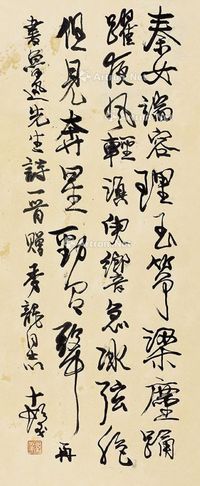 秦女端容理玉箏梁塵踊
躍夜風輕須臾響急冰弦絕
但見奔星勁有聲 再
書魯迅先生詩一首贈秀龍 十髮